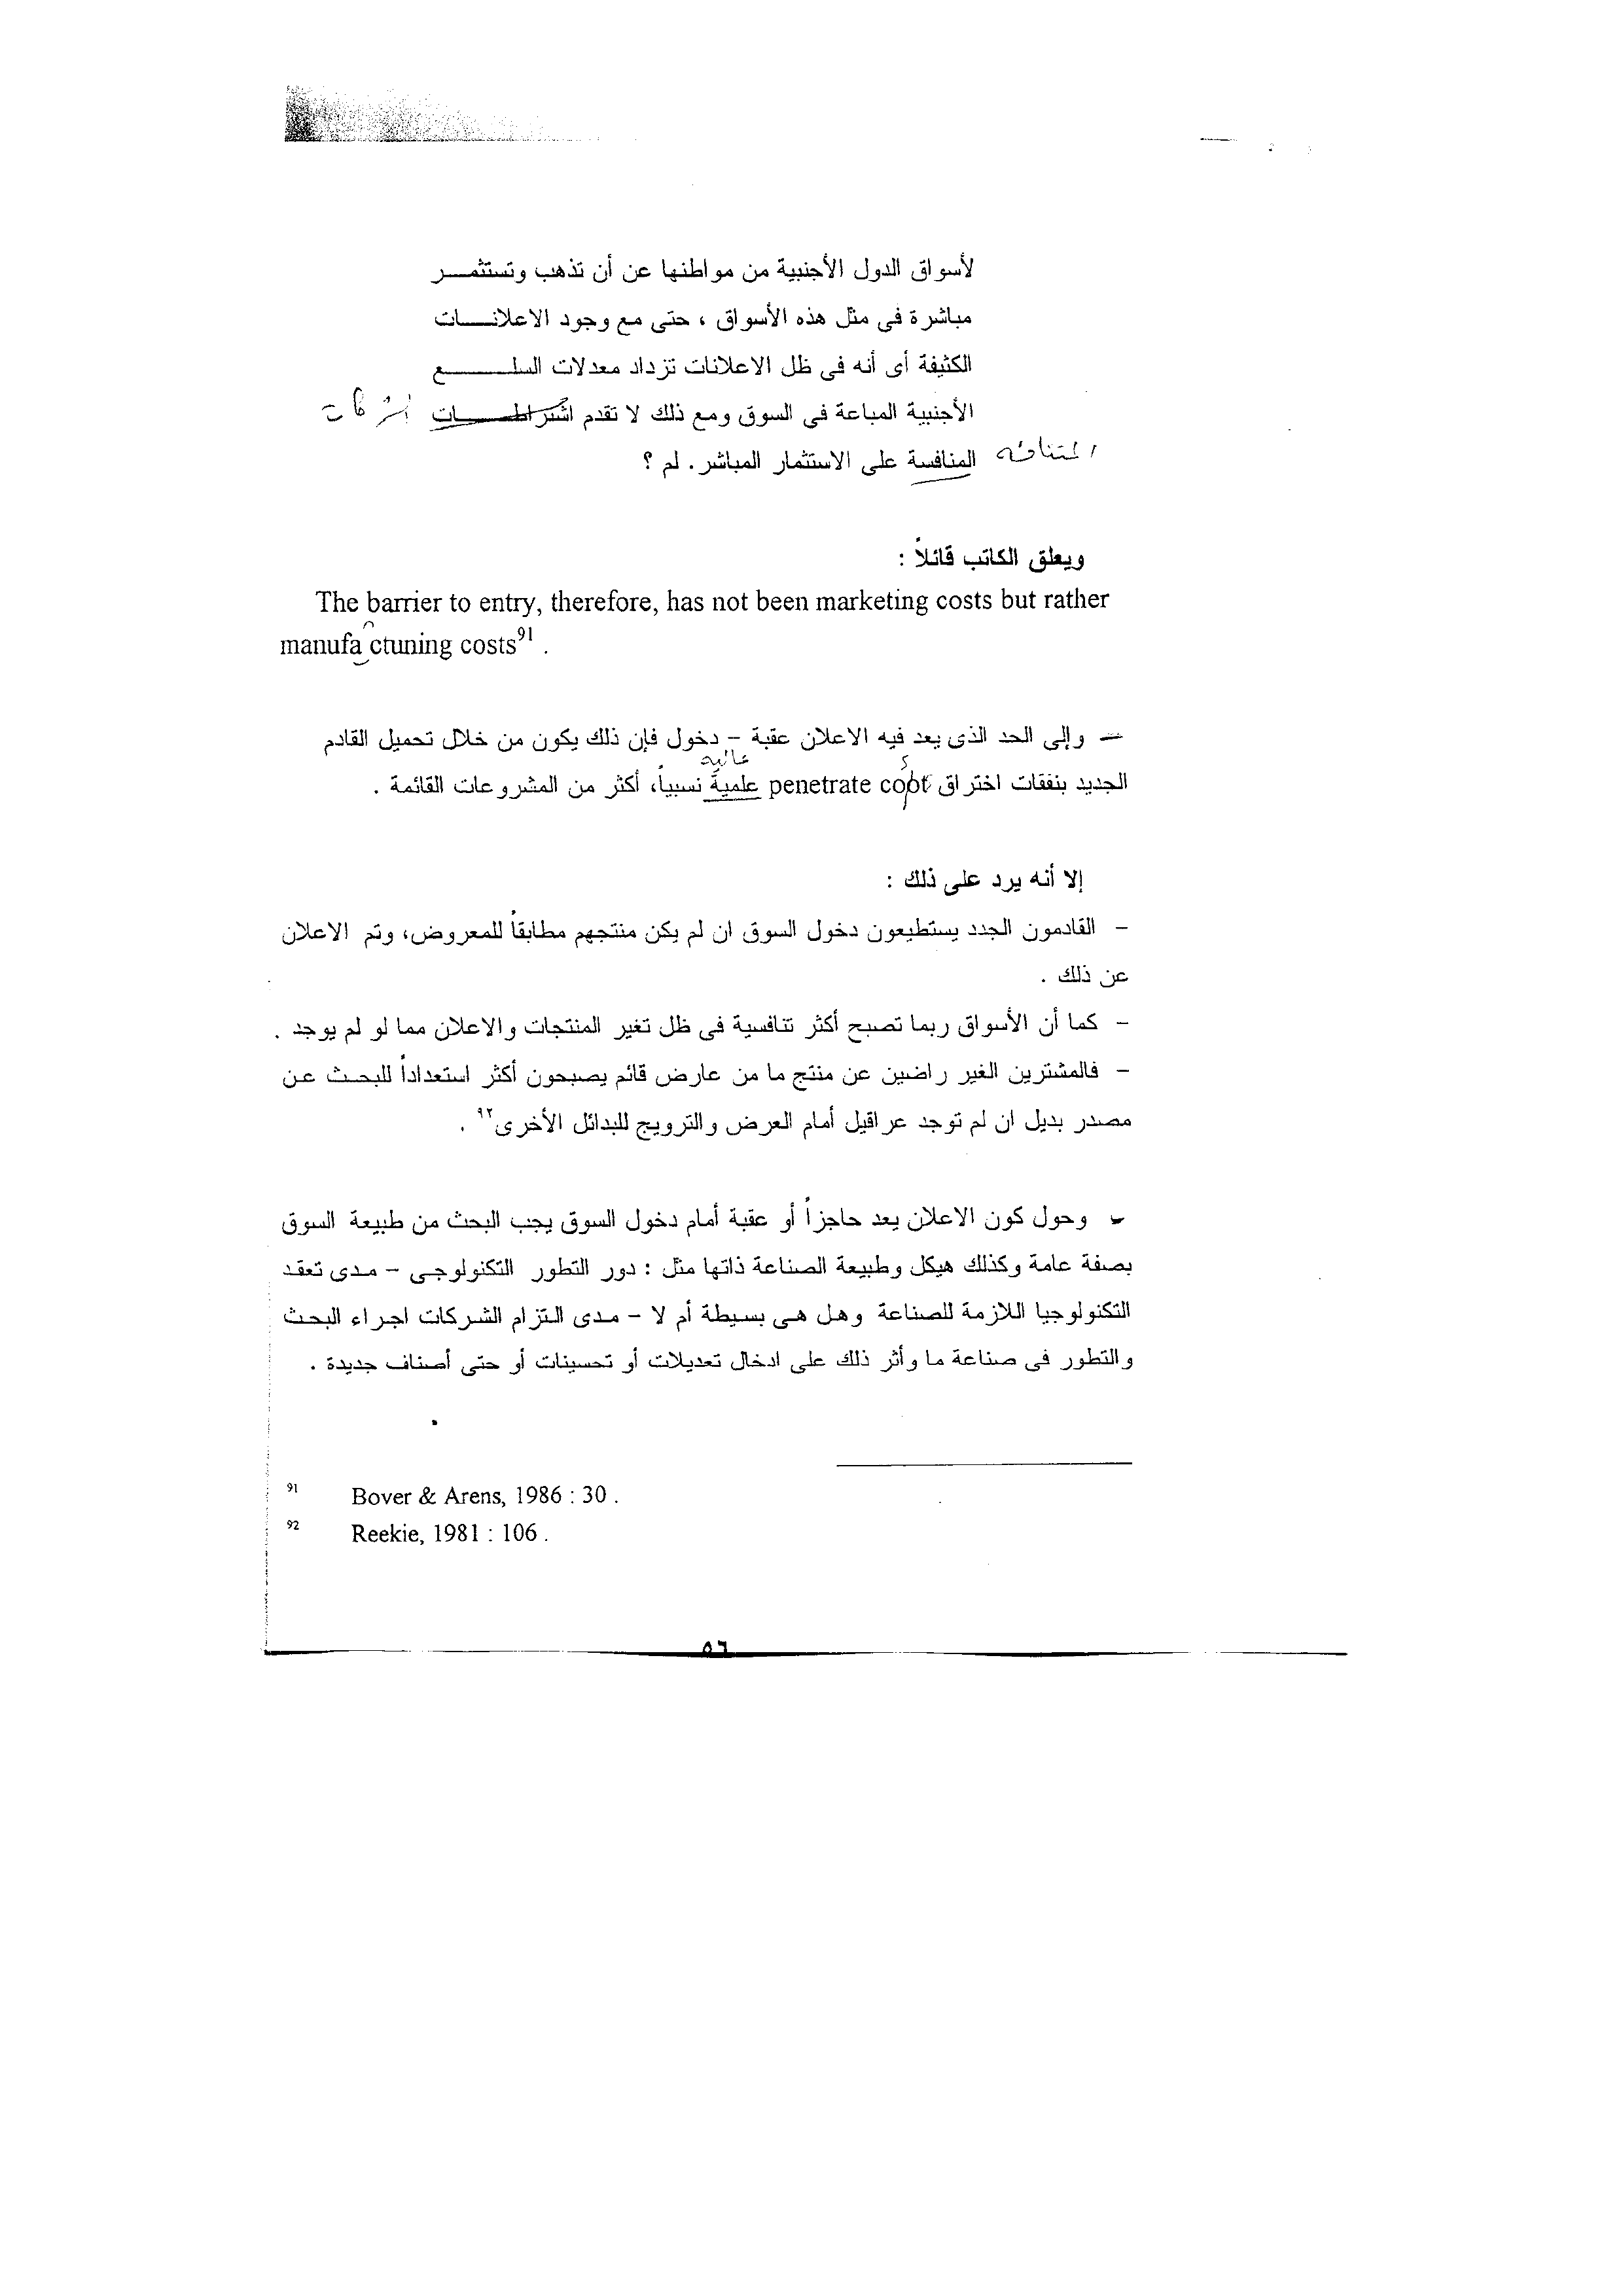 لأسواق الدول الأجنبية من مواطنها عن أن تذهب وتستثمـــر
مباشرة فى مثل هذه الأسواق ، حتى مع وجود الاعلانـــات
الكثيفة أى أنه فى ظل الاعلانات تزداد معدلات السلـــــع
الأجنبية المباعة فى السوق ومع ذلك لا تقدم اشتراطـــات
المنافسة على الاستثمار المباشر. لم ؟
ويعلق الكاتب قائلاً :
The barrier to entry, therefore, has not been marketing costs but rather
manufa ctuning costs91 .
– وإلى الحد الذى يعد فيه الاعلان عقبة – دخول فإن ذلك يكون من خلال تحميل القادم
عالية
الجديد بنفقات اختراق penetrate cobt علمية نسبياً، أكثر من المشروعات القائمة .
إلا أنه يرد على ذلك :
– القادمون الجدد يستطيعون دخول السوق ان لم يكن منتجهم مطابقاً للمعروض، وتم الاعلان
عن ذلك .
– كما أن الأسواق ربما تصبح أكثر تنافسية فى ظل تغير المنتجات والاعلان مما لو لم يوجد .
– فالمشترين الغير راضين عن منتج ما من عارض قائم يصبحون أكثر استعداداً للبحث عن
مصدر بديل ان لم توجد عراقيل أمام العرض والترويج للبدائل الأخرى٩٢ .
– وحول كون الاعلان يعد حاجزاً أو عقبة أمام دخول السوق يجب البحث من طبيعة السوق
بصفة عامة وكذلك هيكل وطبيعة الصناعة ذاتها مثل : دور التطور التكنولوجى – مدى تعقد
التكنولوجيا اللازمة للصناعة وهل هى بسيطة أم لا – مدى التزام الشركات اجراء البحث
والتطور فى صناعة ما وأثر ذلك على ادخال تعديلات أو تحسينات أو حتى أصناف جديدة .
91 Bover & Arens, 1986 : 30 .
92 Reekie, 1981 : 106 .
٥٦